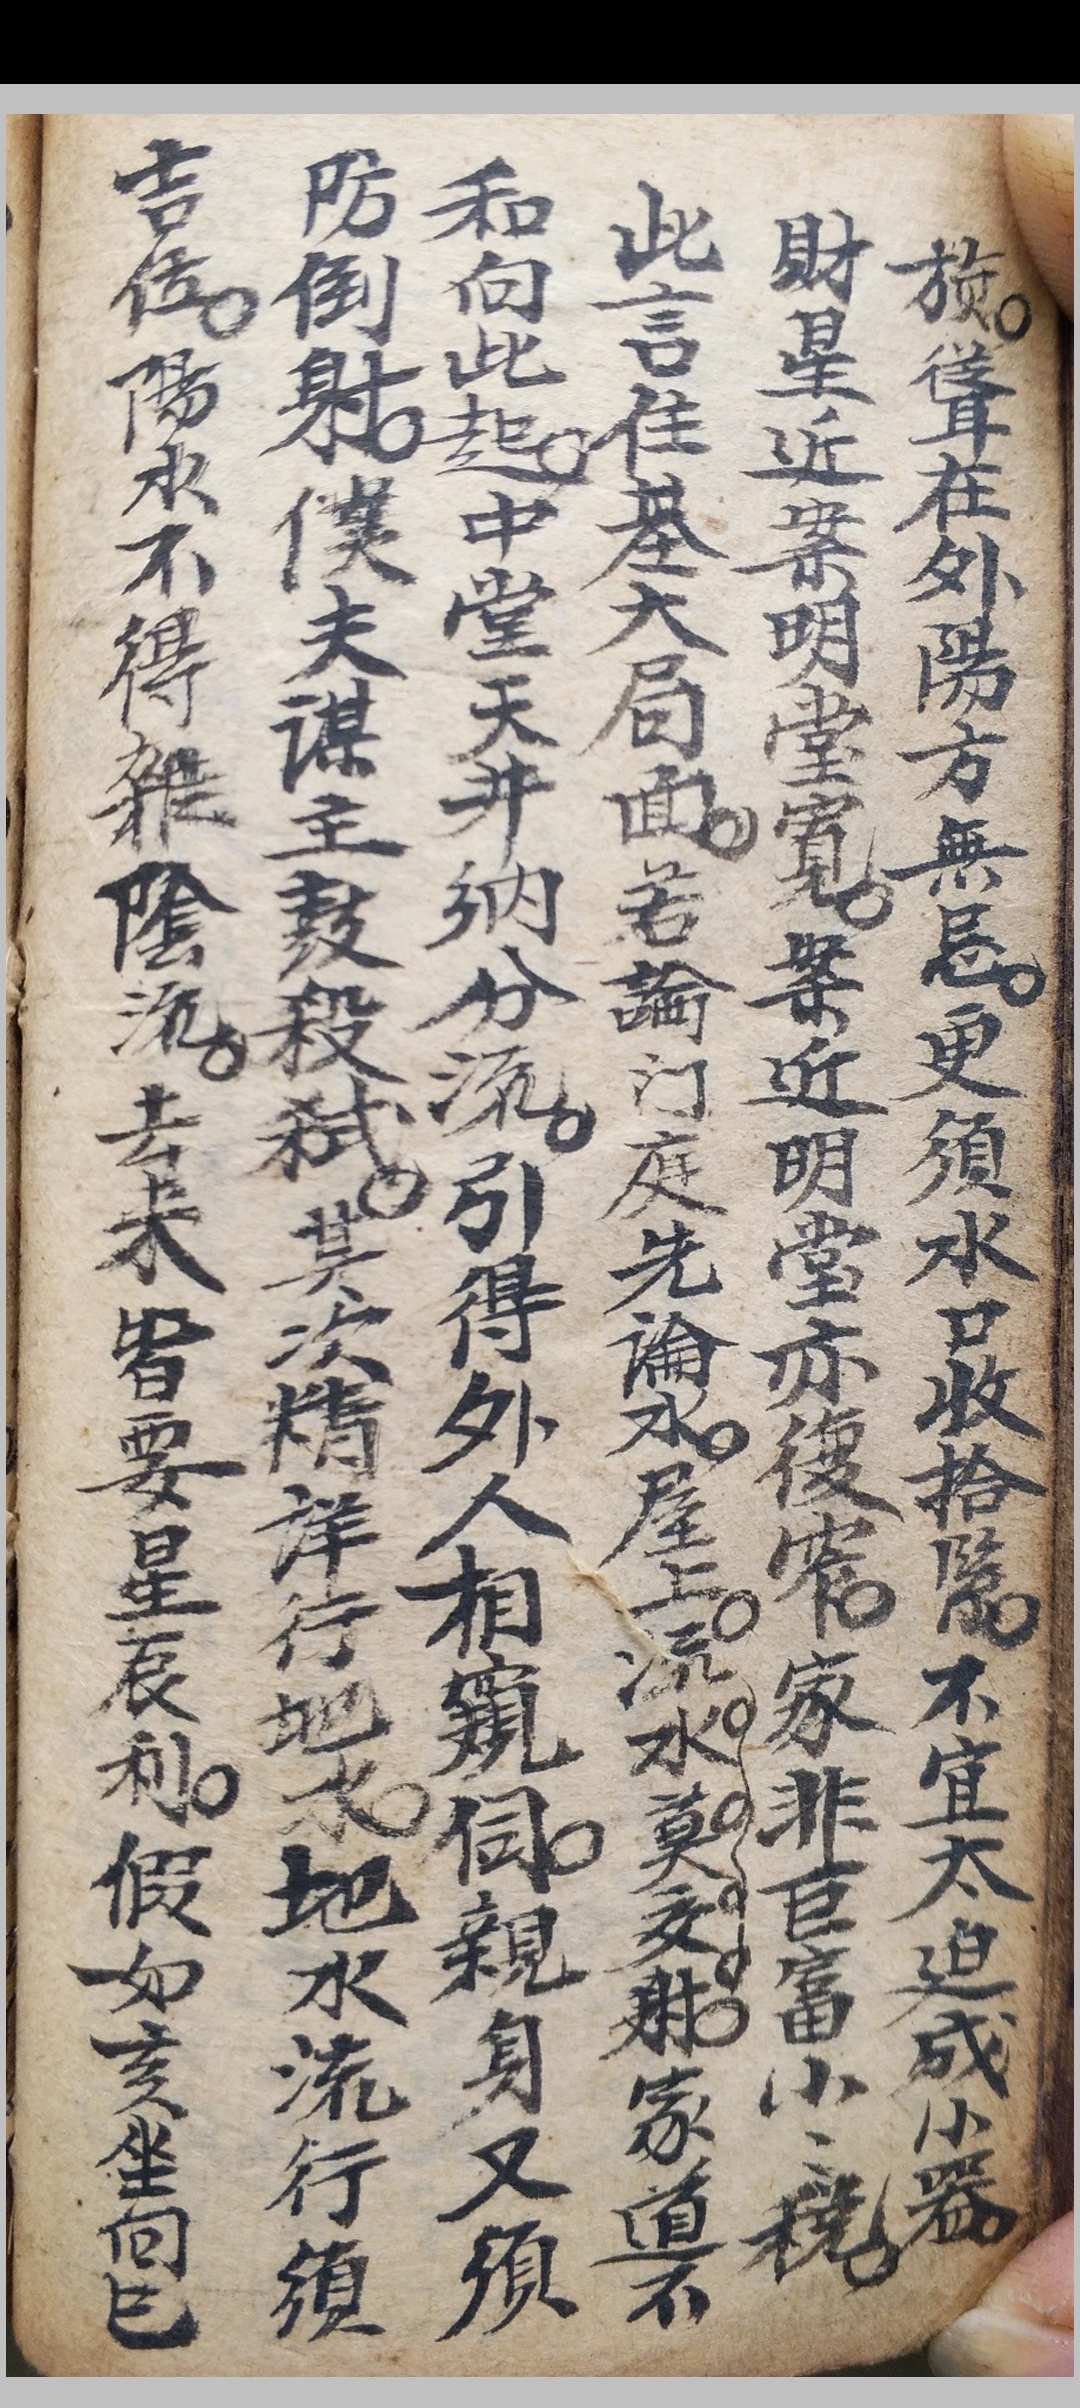 旋。聳在外陽方無忌。更須水口收拾緊。不宜太迫成小器。
財星近案明堂寬。案近明堂亦復窄。家非巨富小〻穩。
此言住基大局面。若論门庭先論水。屋上。流水莫交射。家道不
和向此起。中堂天井納分流。引得外人相窺伺。親身又須
防倒射。僕夫謀主敢殺弑。其次精详行地水。地水流行須
吉位。陽水不得雜陰流。去来皆要星辰利。假如亥坐向巳